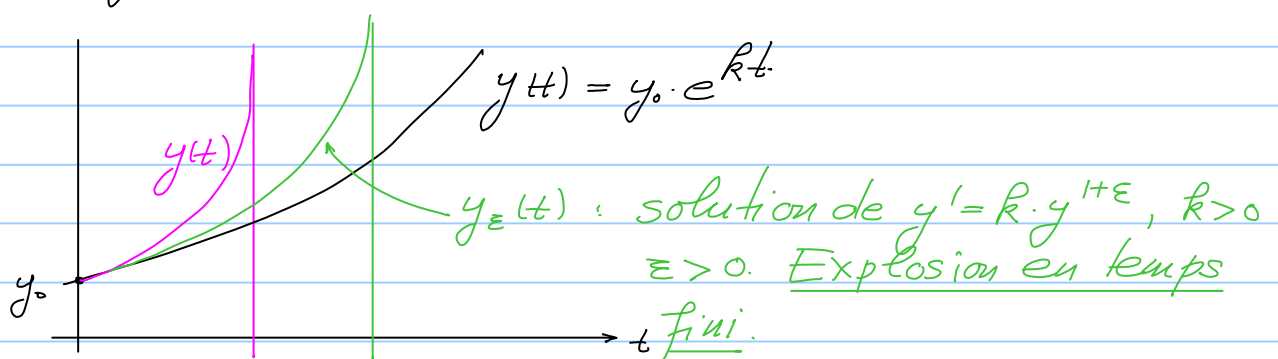 y(t) = y₀ · e^{kt}
y(t)
y_ε(t) : solution de y' = k · y^{1+ε}, k>0
ε > 0. Explosion en temps
y₀
t fini.